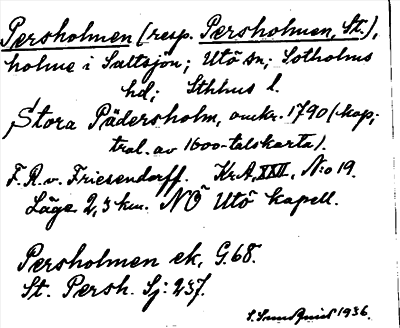 Persholmen (resp. Persholmen, St.),
holme i Saltsjön; Utö sn; Sotholms
hd; Sthlms l.
Stora Pädersholm, omkr. 1790 (kop;
tral. av 1600-talskarta).
F. R. v. Friesendorff. KrA, XXII, N:o 19.
Läge 2,3 km. NÖ Utö kapell.
Persholmen ek, G. 68.
St. Persh. Sj: 237.
S. Sundquist 1936.